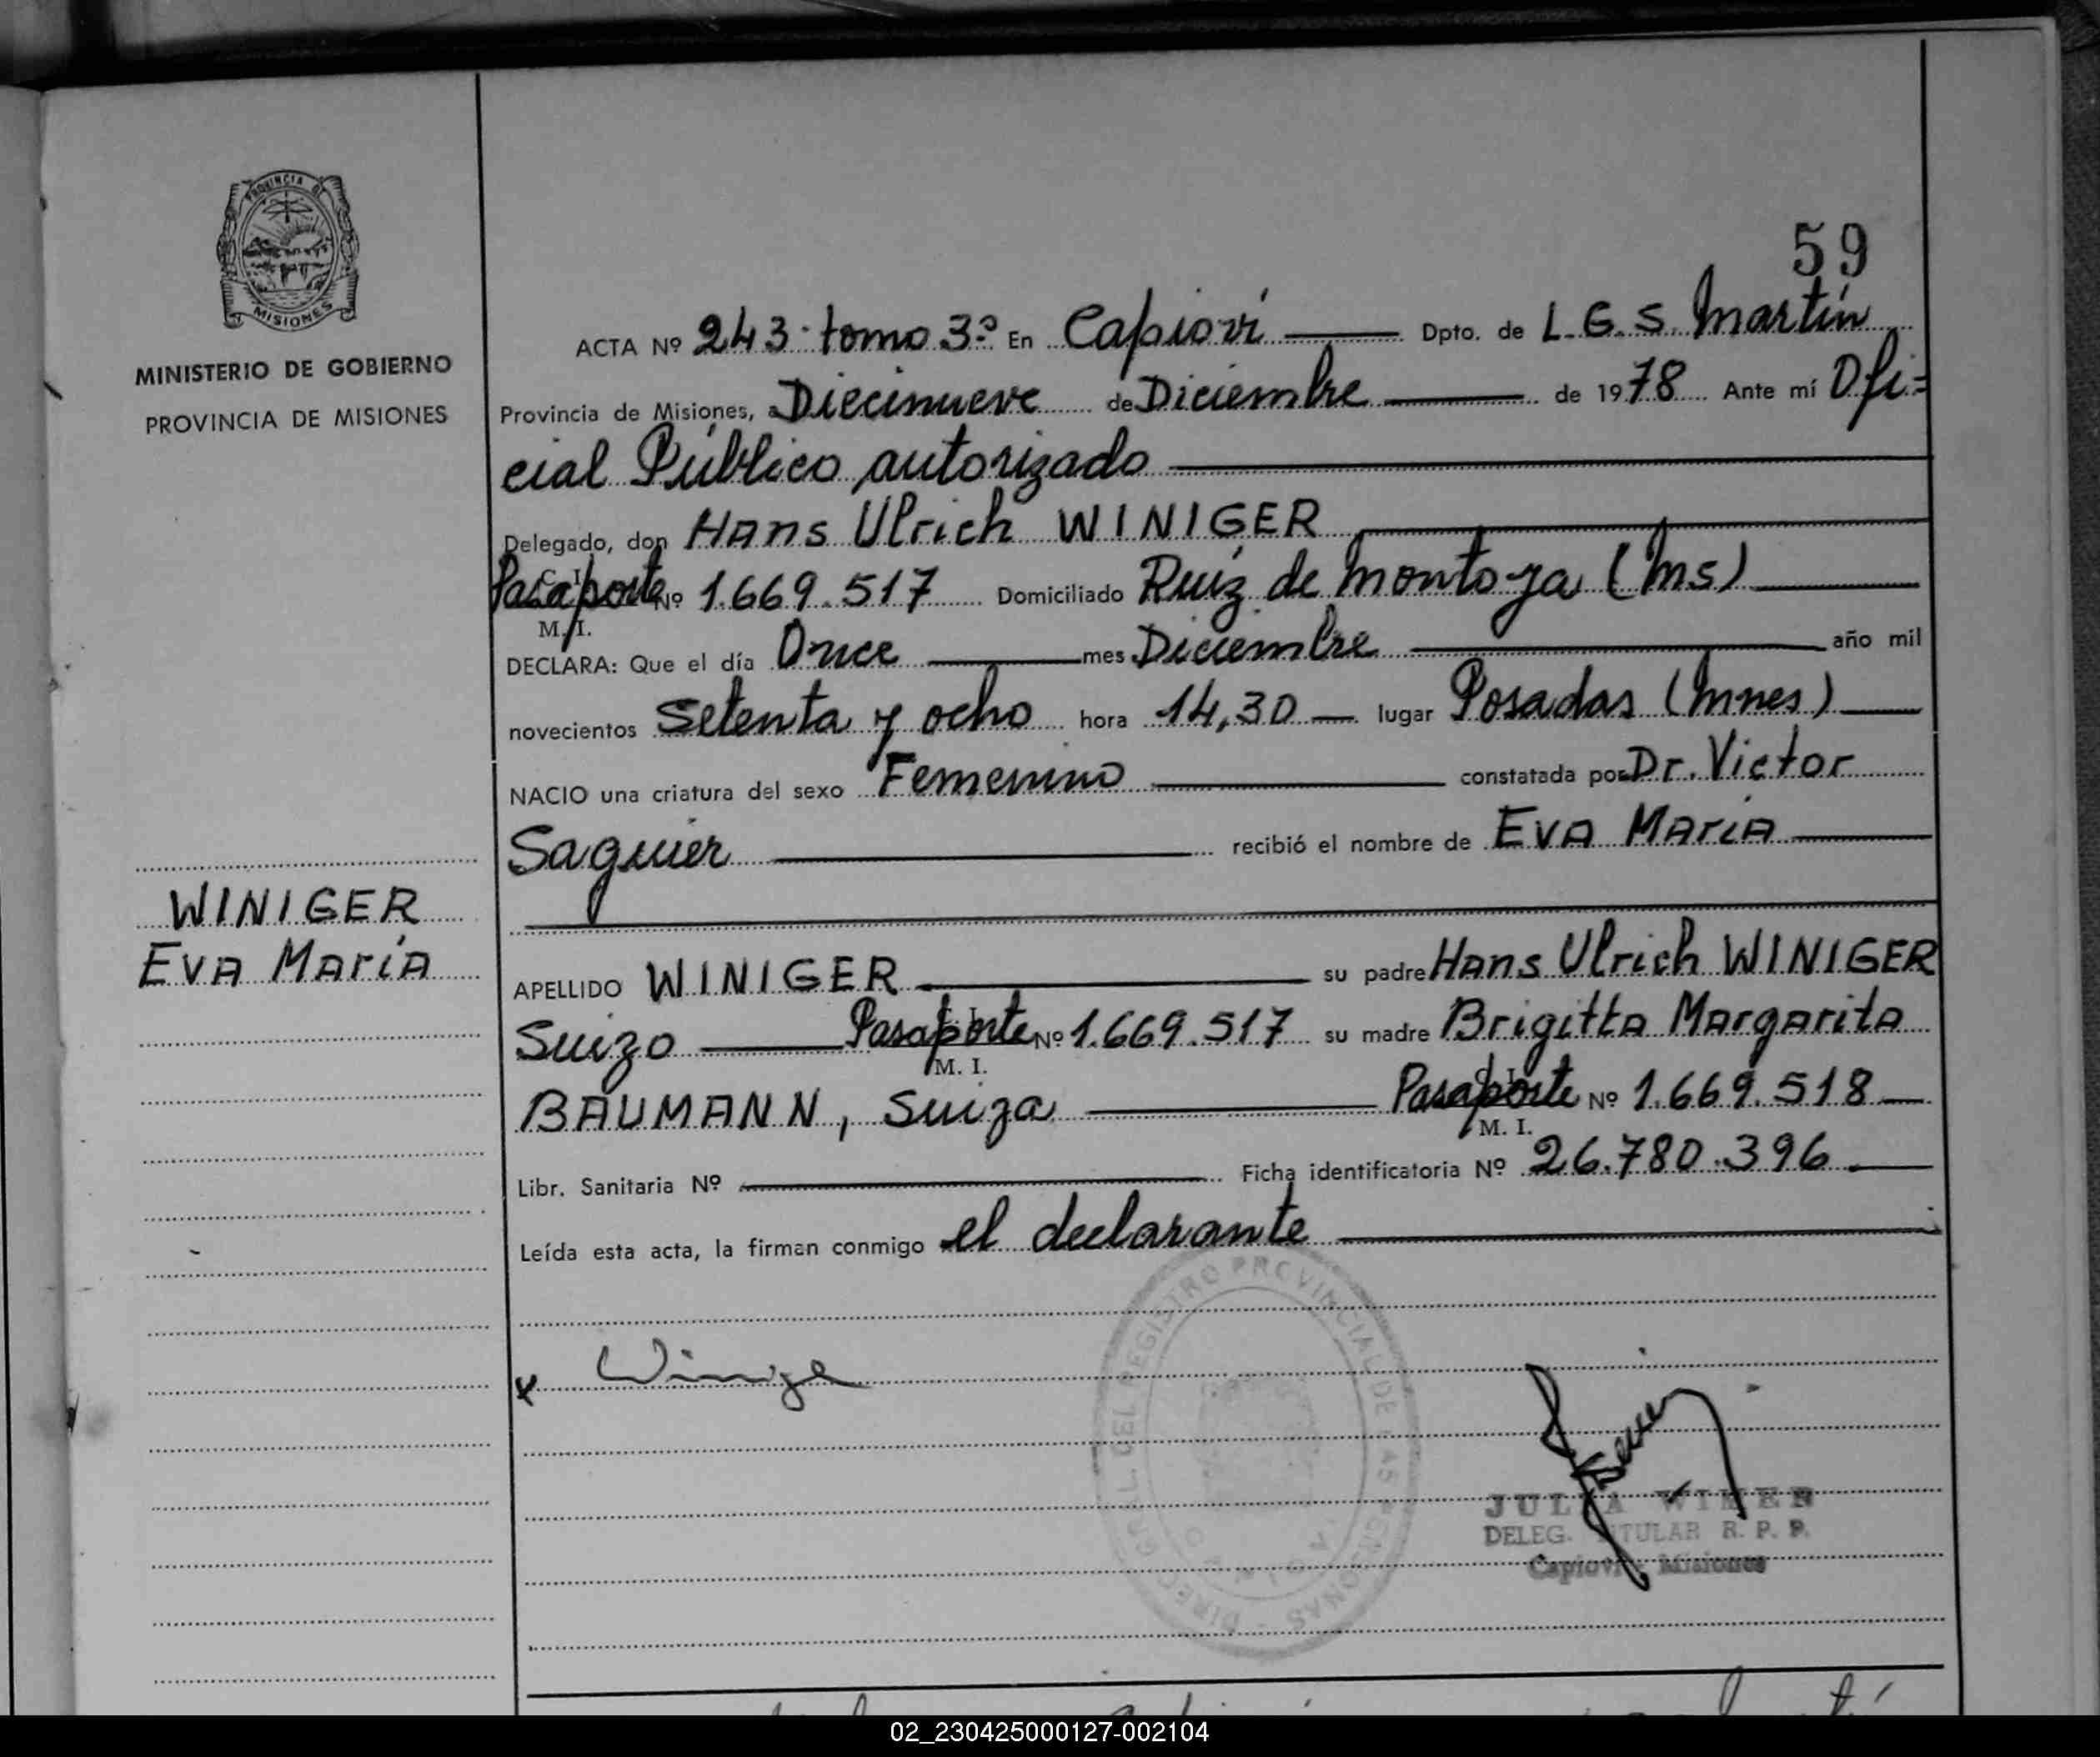 59
PROVINCIA DE
MISIONES
MINISTERIO DE GOBIERNO
PROVINCIA DE MISIONES
ACTA Nº 243 tomo 3º En Capioví Dpto. de L. G. S. Martín
Provincia de Misiones, a Diecinueve de Diciembre de 1978 Ante mí Ofi=
cial Público autorizado
Delegado, don Hans Ulrich WINIGER
Pasaporte Nº 1.669.517 Domiciliado Ruiz de Montoya (Ms)
M. I.
DECLARA: Que el día Once mes Diciembre año mil
novecientos Setenta y ocho hora 14,30 lugar Posadas (Mnes)
NACIO una criatura del sexo Femenino constatada por Dr. Victor
Saguier recibió el nombre de Eva María
WINIGER
Eva María
APELLIDO WINIGER su padre Hans Ulrich WINIGER
Suizo Pasaporte Nº 1.669.517 su madre Brigitta Margarita
M. I.
BAUMANN, Suiza Pasaporte Nº 1.669.518
M. I.
Libr. Sanitaria Nº Ficha identificatoria Nº 26.780.396
Leída esta acta, la firman conmigo el declarante
REGISTRO PROVINCIAL DE LAS PERSONAS
x Winiger
JULIA
DELEG. TITULAR R. P. P.
Capioví - Misiones
02_230425000127-002104